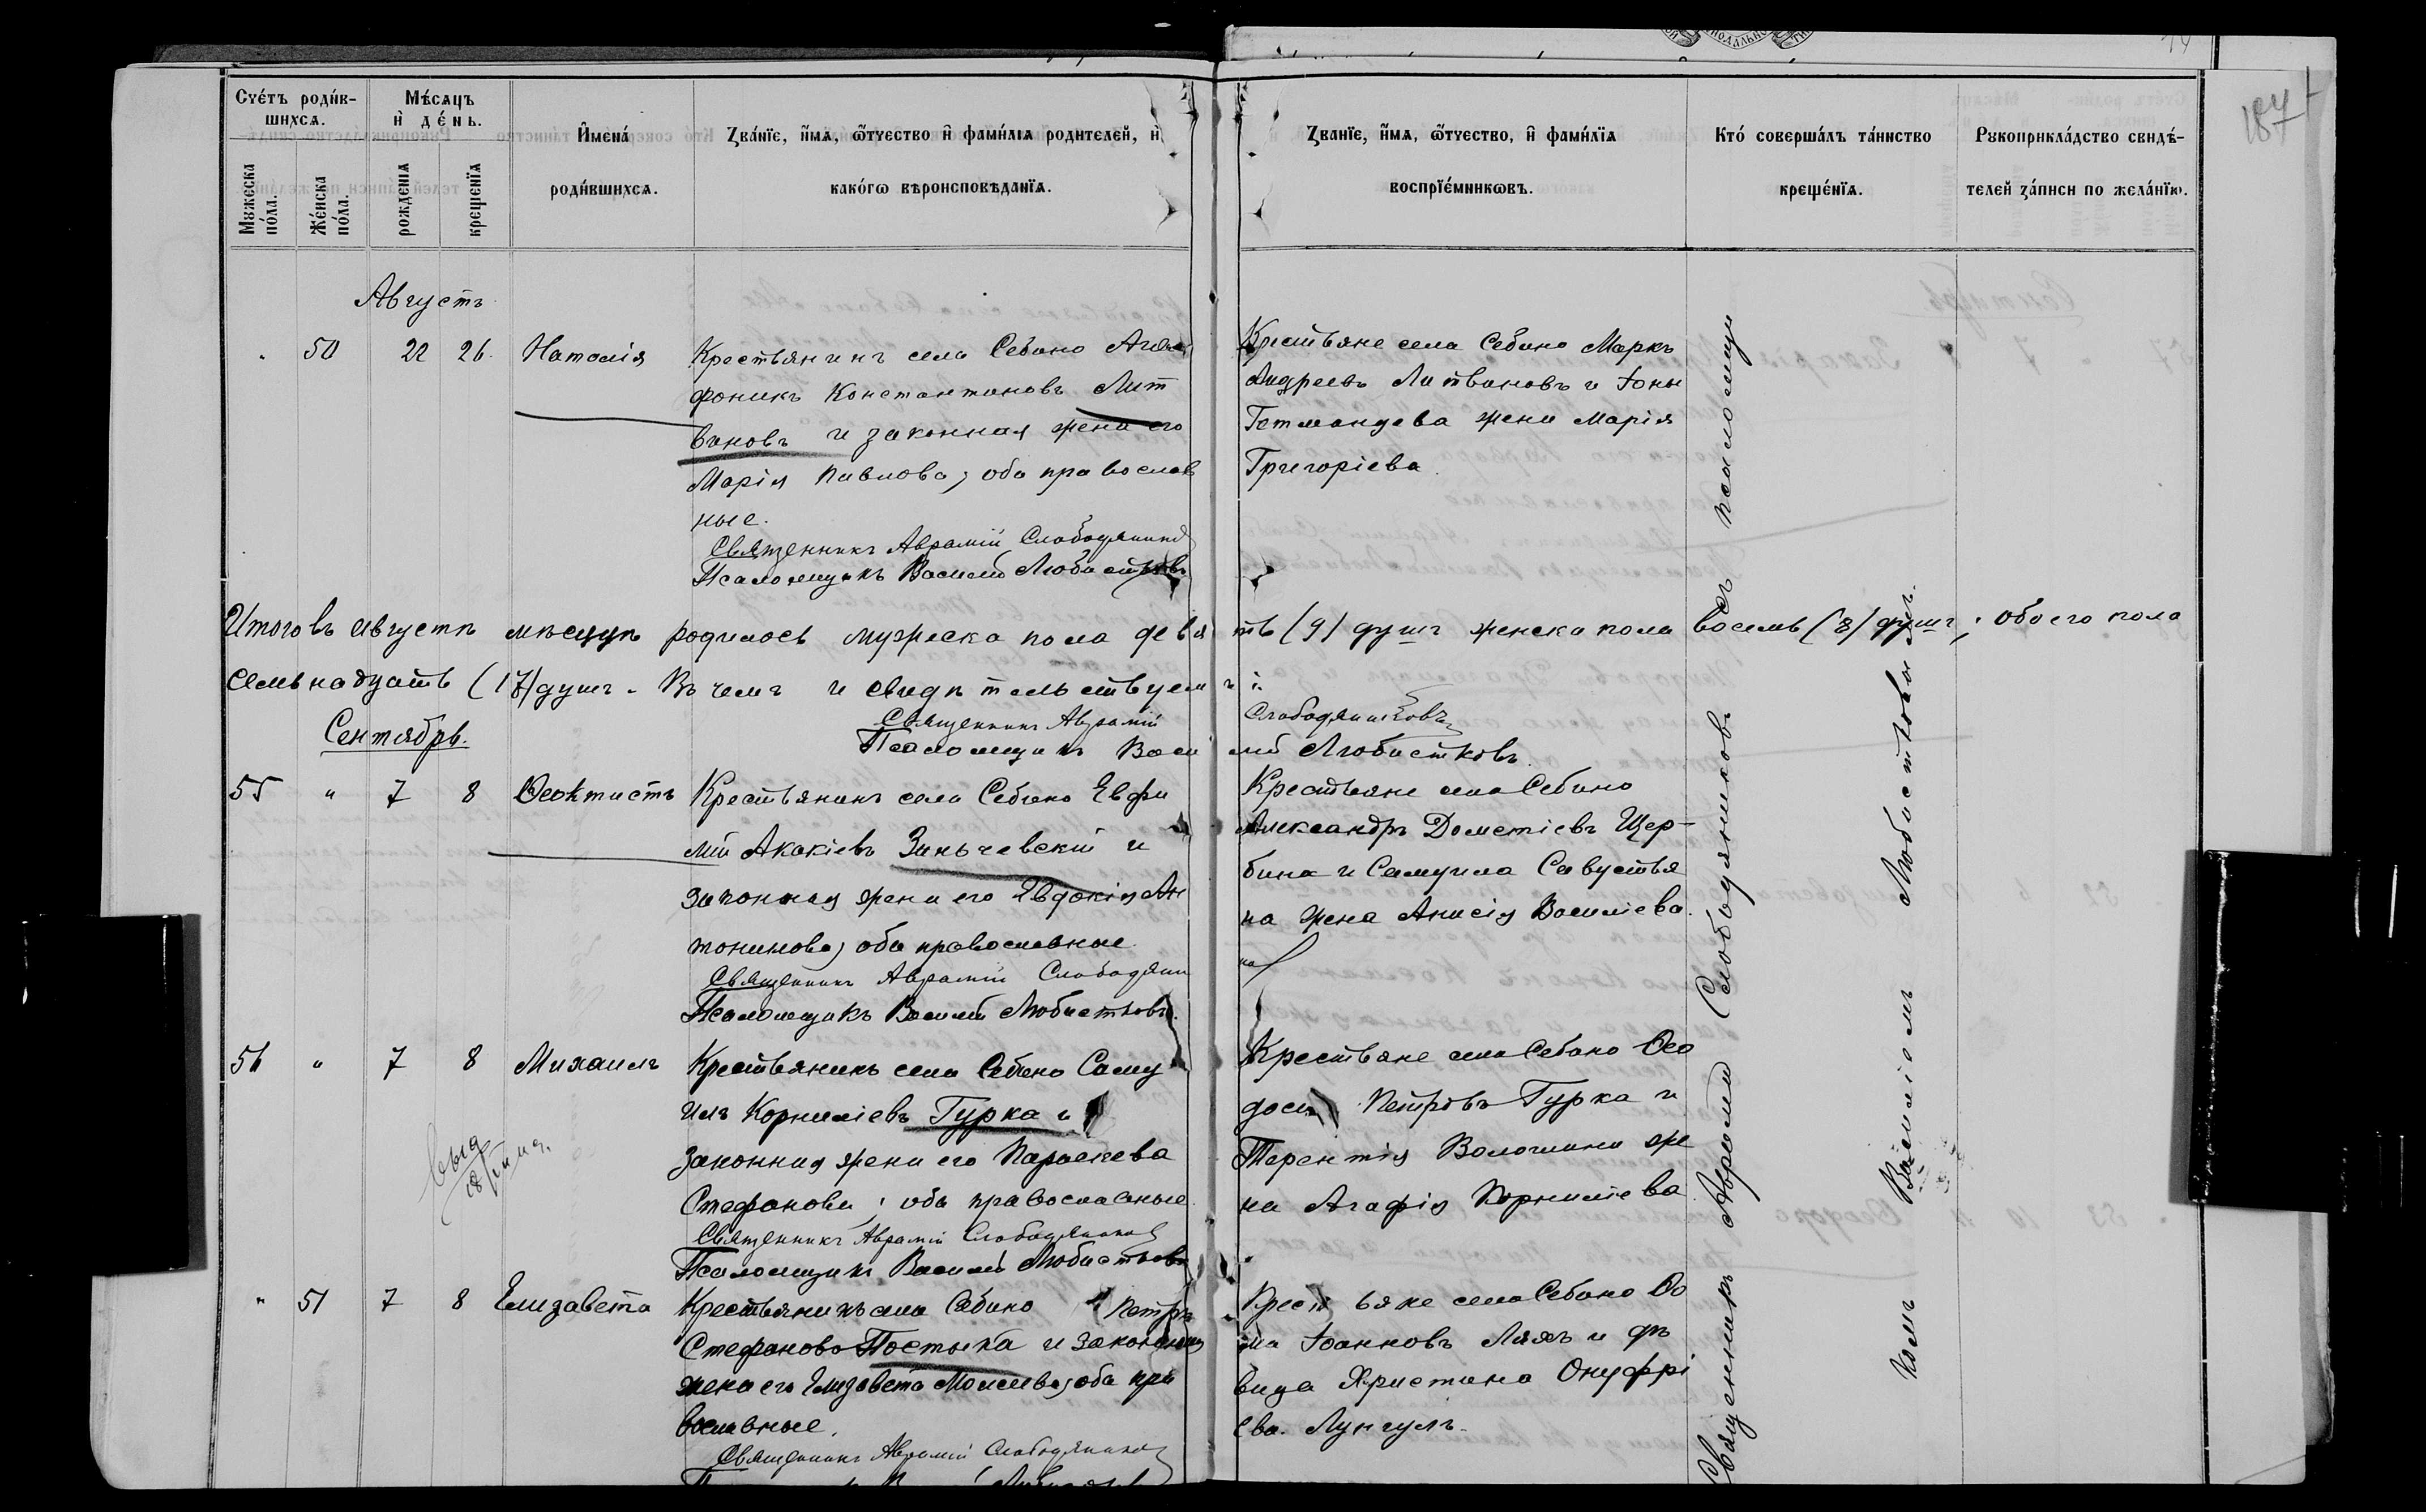 187
Счетъ родив-
шихся.
Мѣсяцъ
и день.
Мужеска
пола.
Женска
пола.
рожденія
крещенія
Имена
родившихся.
Званіе, имя, отчество и фамилія родителей, и
какого вѣроисповѣданія.
Званіе, имя, отчество, и фамилія
воспріемниковъ.
Кто совершалъ таинство
крещенія.
Рукоприкладство свидѣ-
телей записи по желанію.
Августъ
50 22 26. Наталія
Крестьянинъ села Себино Агаѳ
фоникъ Константиновъ Лит
виновъ и законная жена его
Марія Павлова, оба православ
ные.
Священникъ Аврамій Слободяников
Псаломщикъ Василій Любистковъ
Крестьяне села Себино Маркъ
Андреевъ Литвиновъ и Іоны
Гетманцева жена Марія
Григоріева
Итого въ августѣ мѣсяцѣ родилось мужеска пола девя ть (9) душъ женска пола восемь (8) душъ, обоего пола
семьнадцать (17) душъ. Въ чемъ и свидѣтельствуемъ:
Священникъ Аврамій Слободяниковъ
Псаломщикъ Васи лій Любистковъ.
Сентябрь.
55 " 7 8 Ѳеоктистъ
Крестьянинъ села Себино Евфи
мій Акакіевъ Зиньчевскій и
законная жена его Евдокія Ан
тонинова, оба православные.
Священникъ Аврамій Слободяни
Псаломщикъ Василій Любистковъ.
Крестьяне села Себино
Александръ Дометіевъ Щер-
бина и Самуила Савустья
на жена Анисія Василіева.
56 " 7 8 Михаилъ
Крестьянинъ села Себино Саму
илъ Корниліевъ Гурка и
законная жена его Параскева
Стефанова, оба православные
Священникъ Аврамій Слободяников
Псаломщикъ Василій Любистковъ
Крестьяне села Себино Ѳео
досій Петровъ Гурка и
Терентія Волошина же
на Агафія Корниліева
" 51 7 8 Елизавета
Крестьянинъ села Себино Петръ
Стефановъ Постыка и законная
жена его Елизавета Моисеева, оба пра
вославные.
Священникъ Аврамій Слободяников
Крестьяне села Себино Ѳо
ма Іоанновъ Ляхъ и дѣ
вица Христина Онуфрі
ева Лунгулъ.
Священникъ Аврамій Слободяниковъ съ псаломщи
комъ Василіемъ Любистковымъ.